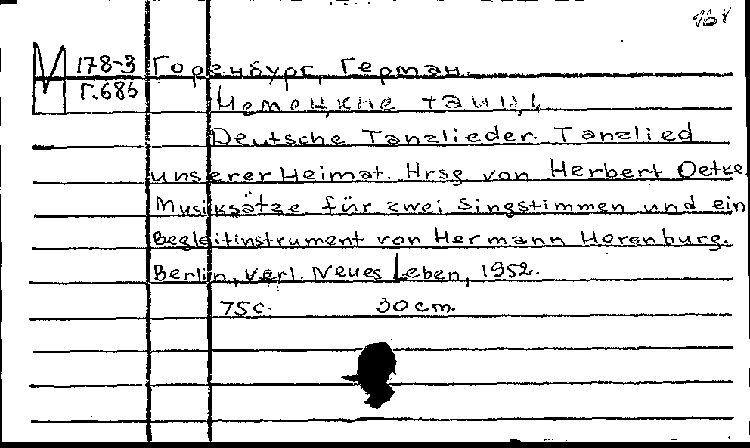 М 178-3
Г.686
Горенбург, Герман.
Немецкие танцы.
Deutsche Tanzlieder. Tanzlied
unserer Heimat. Hrsg von Herbert Oetke.
Musiksätze für zwei Singstimmen und ein
Begleitinstrument von Hermann Horenburg.
Berlin, Verl. Neues Leben, 1952.
75с. 30 cm.